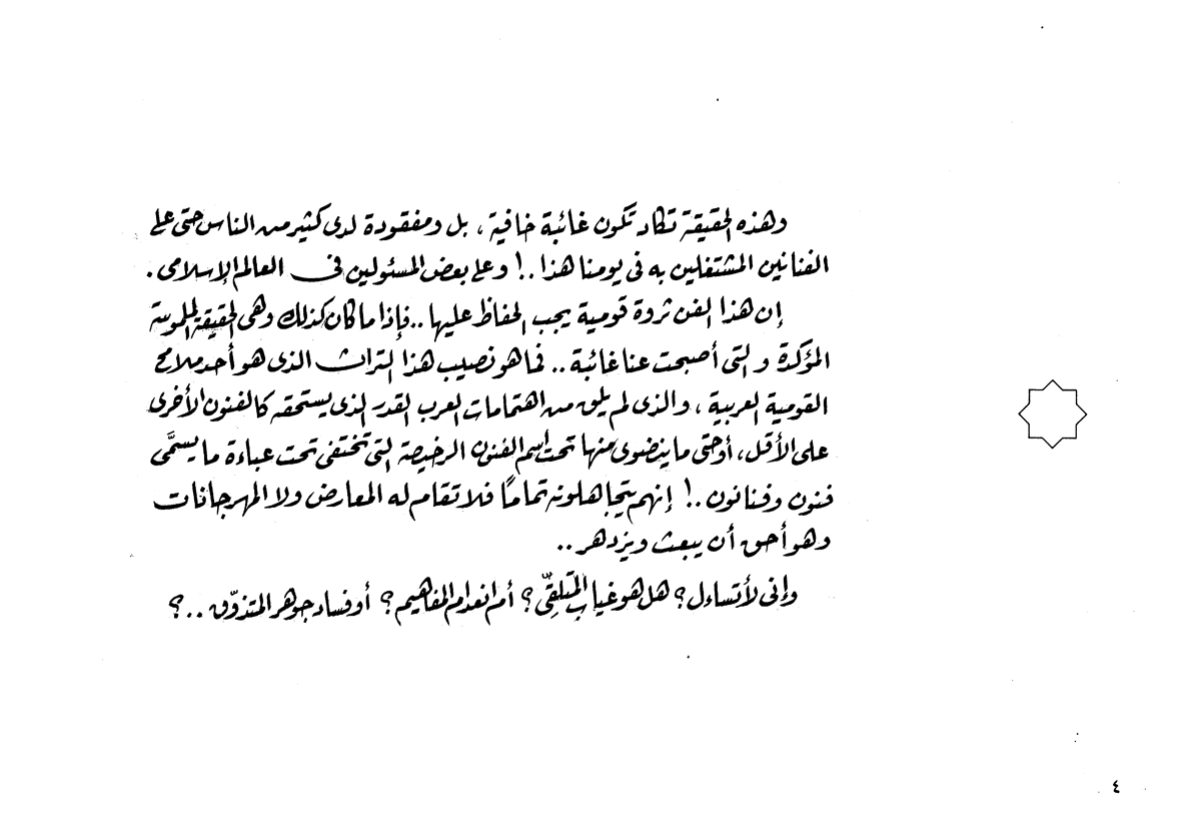 وهذه الحقيقة تكاد تكون غائبة خافية ، بل ومفقودة لدى كثير من الناس حتى على
الفنانين المشتغلين به فى يومنا هذا ..! وعلى بعض المسئولين فى العالم الإسلامى .
إن هذا الفن ثروة قومية يجب الحفاظ عليها .. فإذا ما كان كذلك وهى الحقيقة الملموسة
المؤكدة والتى أصبحت عنا غائبة .. فما هو نصيب هذا التراث الذى هو أحد ملامح
القومية العربية ، والذى لم يلق من اهتمامات العرب القدر الذى يستحقه كالفنون الأخرى
على الأقل ، أو حتى ما ينضوى منها تحت اسم الفنون الرخيصة التى تختفى تحت عباءة ما يسمَّى
فنون وفنانون ..! إنهم يتجاهلونه تمامًا فلا تقام له المعارض ولا المهرجانات
وهو أحق أن يبعث ويزدهر ..
وإنى لأتساءل ؟ هل هو غياب المتلقِّى ؟ أم انعدام المفاهيم ؟ أو فساد جوهر المتذوّق ..؟
٤